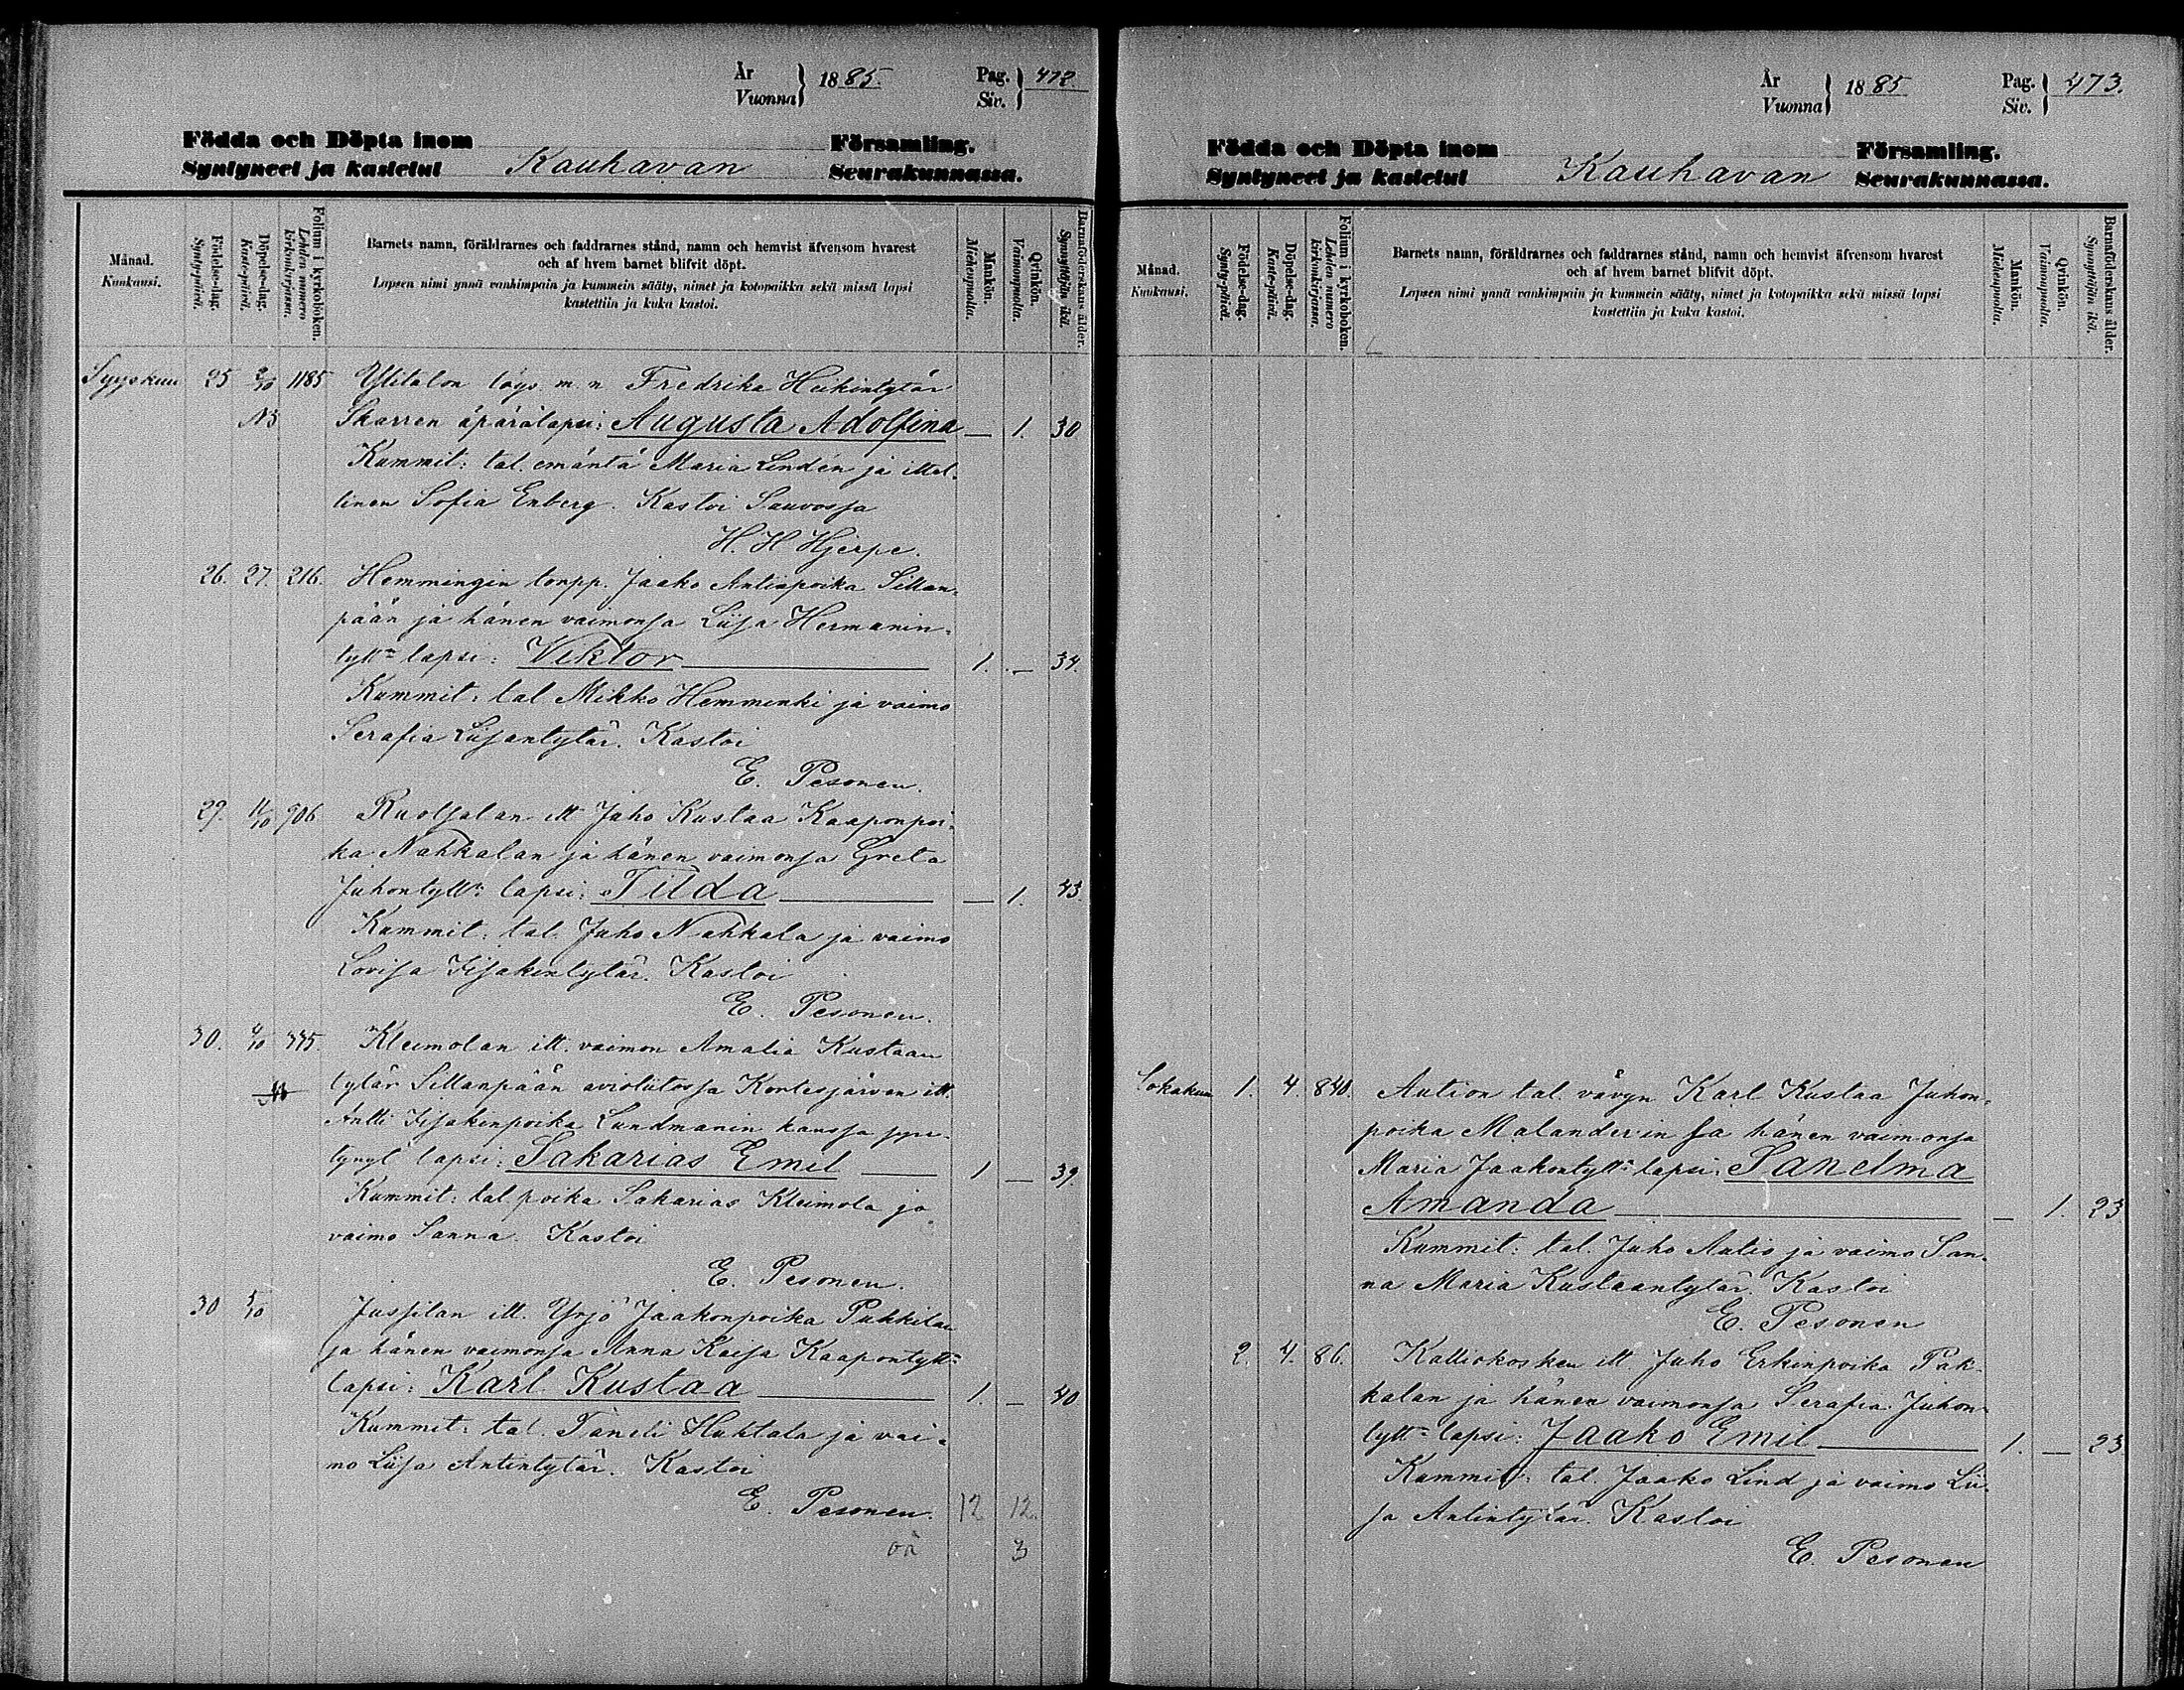 År
Vuonna } 1885. Pag.
Siv. } 472.
Födda och Döpta inom Församling.
Syntyneet ja kastetut Kauhavan Seurakunnassa.
Månad.
Kuukausi.
Födelse-dag.
Synty-päivä.
Döpelse-dag.
Kaste-päivä.
Folium i kyrkoboken.
Lehden numero
kirkonkirjassa.
Barnets namn, föräldrarnes och faddrarnes stånd, namn och hemvist äfvensom hvarest
och af hvem barnet blifvit döpt.
Lapsen nimi ynnä vanhimpain ja kummein sääty, nimet ja kotopaikka sekä missä lapsi
kastettiin ja kuka kastoi.
Mankön.
Miehenpuolia.
Qvinkön.
Vaimonpuolia.
Barnaföderskans ålder.
Synnyttäjän ikä.
Syyskuu 25 2/10 1185 Ylitalon löys. m. n Fredrika Heikintytär
NB Skarren äpärälapsi: Augusta Adolfina — 1. 30
Kummit: tal. emäntä Maria Lindén ja ittel-
linen Sofia Enberg. Kastoi Sauvossa
H. H Hjerpe.
26. 27. 216. Hemmingin torpp. Jaako Antinpoika Sillan-
pään ja hänen vaimonsa Liisa Hermanin-
tytt: lapsi: Viktor 1. — 34.
Kummit: tal Mikko Hemminki ja vaimo
Serafia Liisantytär. Kastoi
E. Pesonen.
29. 11/10 906 Ruotsalan itt Juho Kustaa Kaaponpoi-
ka Nahkalan ja hänen vaimonsa Greta
Juhontytt: lapsi: Tilda — 1. 43.
Kummit: tal. Juho Nahkala ja vaimo
Lovisa Iisakintytär. Kastoi
E. Pesonen.
30. 4/10 335. Kleimolan itt. vaimon Amalia Kustaan
NB tytär Sillanpään avioliitossa Kortesjärven itt.
Antti Iisakinpoika Lundmanin kanssa syn-
tynyt lapsi: Sakarias Emil 1 — 39
Kummit: tal. poika Sakarias Kleimola ja
vaimo Sanna. Kastoi
E. Pesonen.
30 5/10 Jussilan itt. Yrjö Jaakonpoika Puhkilan
ja hänen vaimonsa Anna Kaisa Kaapontytt:
lapsi: Karl Kustaa 1. — 40
Kummit: tal. Taneli Huhtala ja vai-
mo Liisa Antintytär. Kastoi
E. Pesonen. 12 12.
3
År
Vuonna } 1885 Pag.
Siv. } 473.
Födda och Döpta inom Församling.
Syntyneet ja kastetut Kauhavan Seurakunnassa.
Månad.
Kuukausi.
Födelse-dag.
Synty-päivä.
Döpelse-dag.
Kaste-päivä.
Folium i kyrkoboken.
Lehden numero
kirkonkirjassa.
Barnets namn, föräldrarnes och faddrarnes stånd, namn och hemvist äfvensom hvarest
och af hvem barnet blifvit döpt.
Lapsen nimi ynnä vanhimpain ja kummein sääty, nimet ja kotopaikka sekä missä lapsi
kastettiin ja kuka kastoi.
Mankön.
Miehenpuolia.
Qvinkön.
Vaimonpuolia.
Barnaföderskans ålder.
Synnyttäjän ikä.
Lokakuu 1. 4. 840. Aution tal. vävyn Karl Kustaa Juhon-
poika Malanderin ja hänen vaimonsa
Maria Jaakontytt: lapsi: Sanelma
Amanda — 1. 23
Kummit: tal. Juho Autio ja vaimo San-
na Maria Kustaantytär. Kastoi
E. Pesonen
2. 4. 86. Kalliokosken itt. Juho Erkinpoika Pak-
kalan ja hänen vaimonsa Serafia Juhon-
tytt: lapsi: Jaako Emil 1. — 23
Kummit: tal. Jaako Lind ja vaimo Lii-
sa Antintytär. Kastoi
E. Pesonen